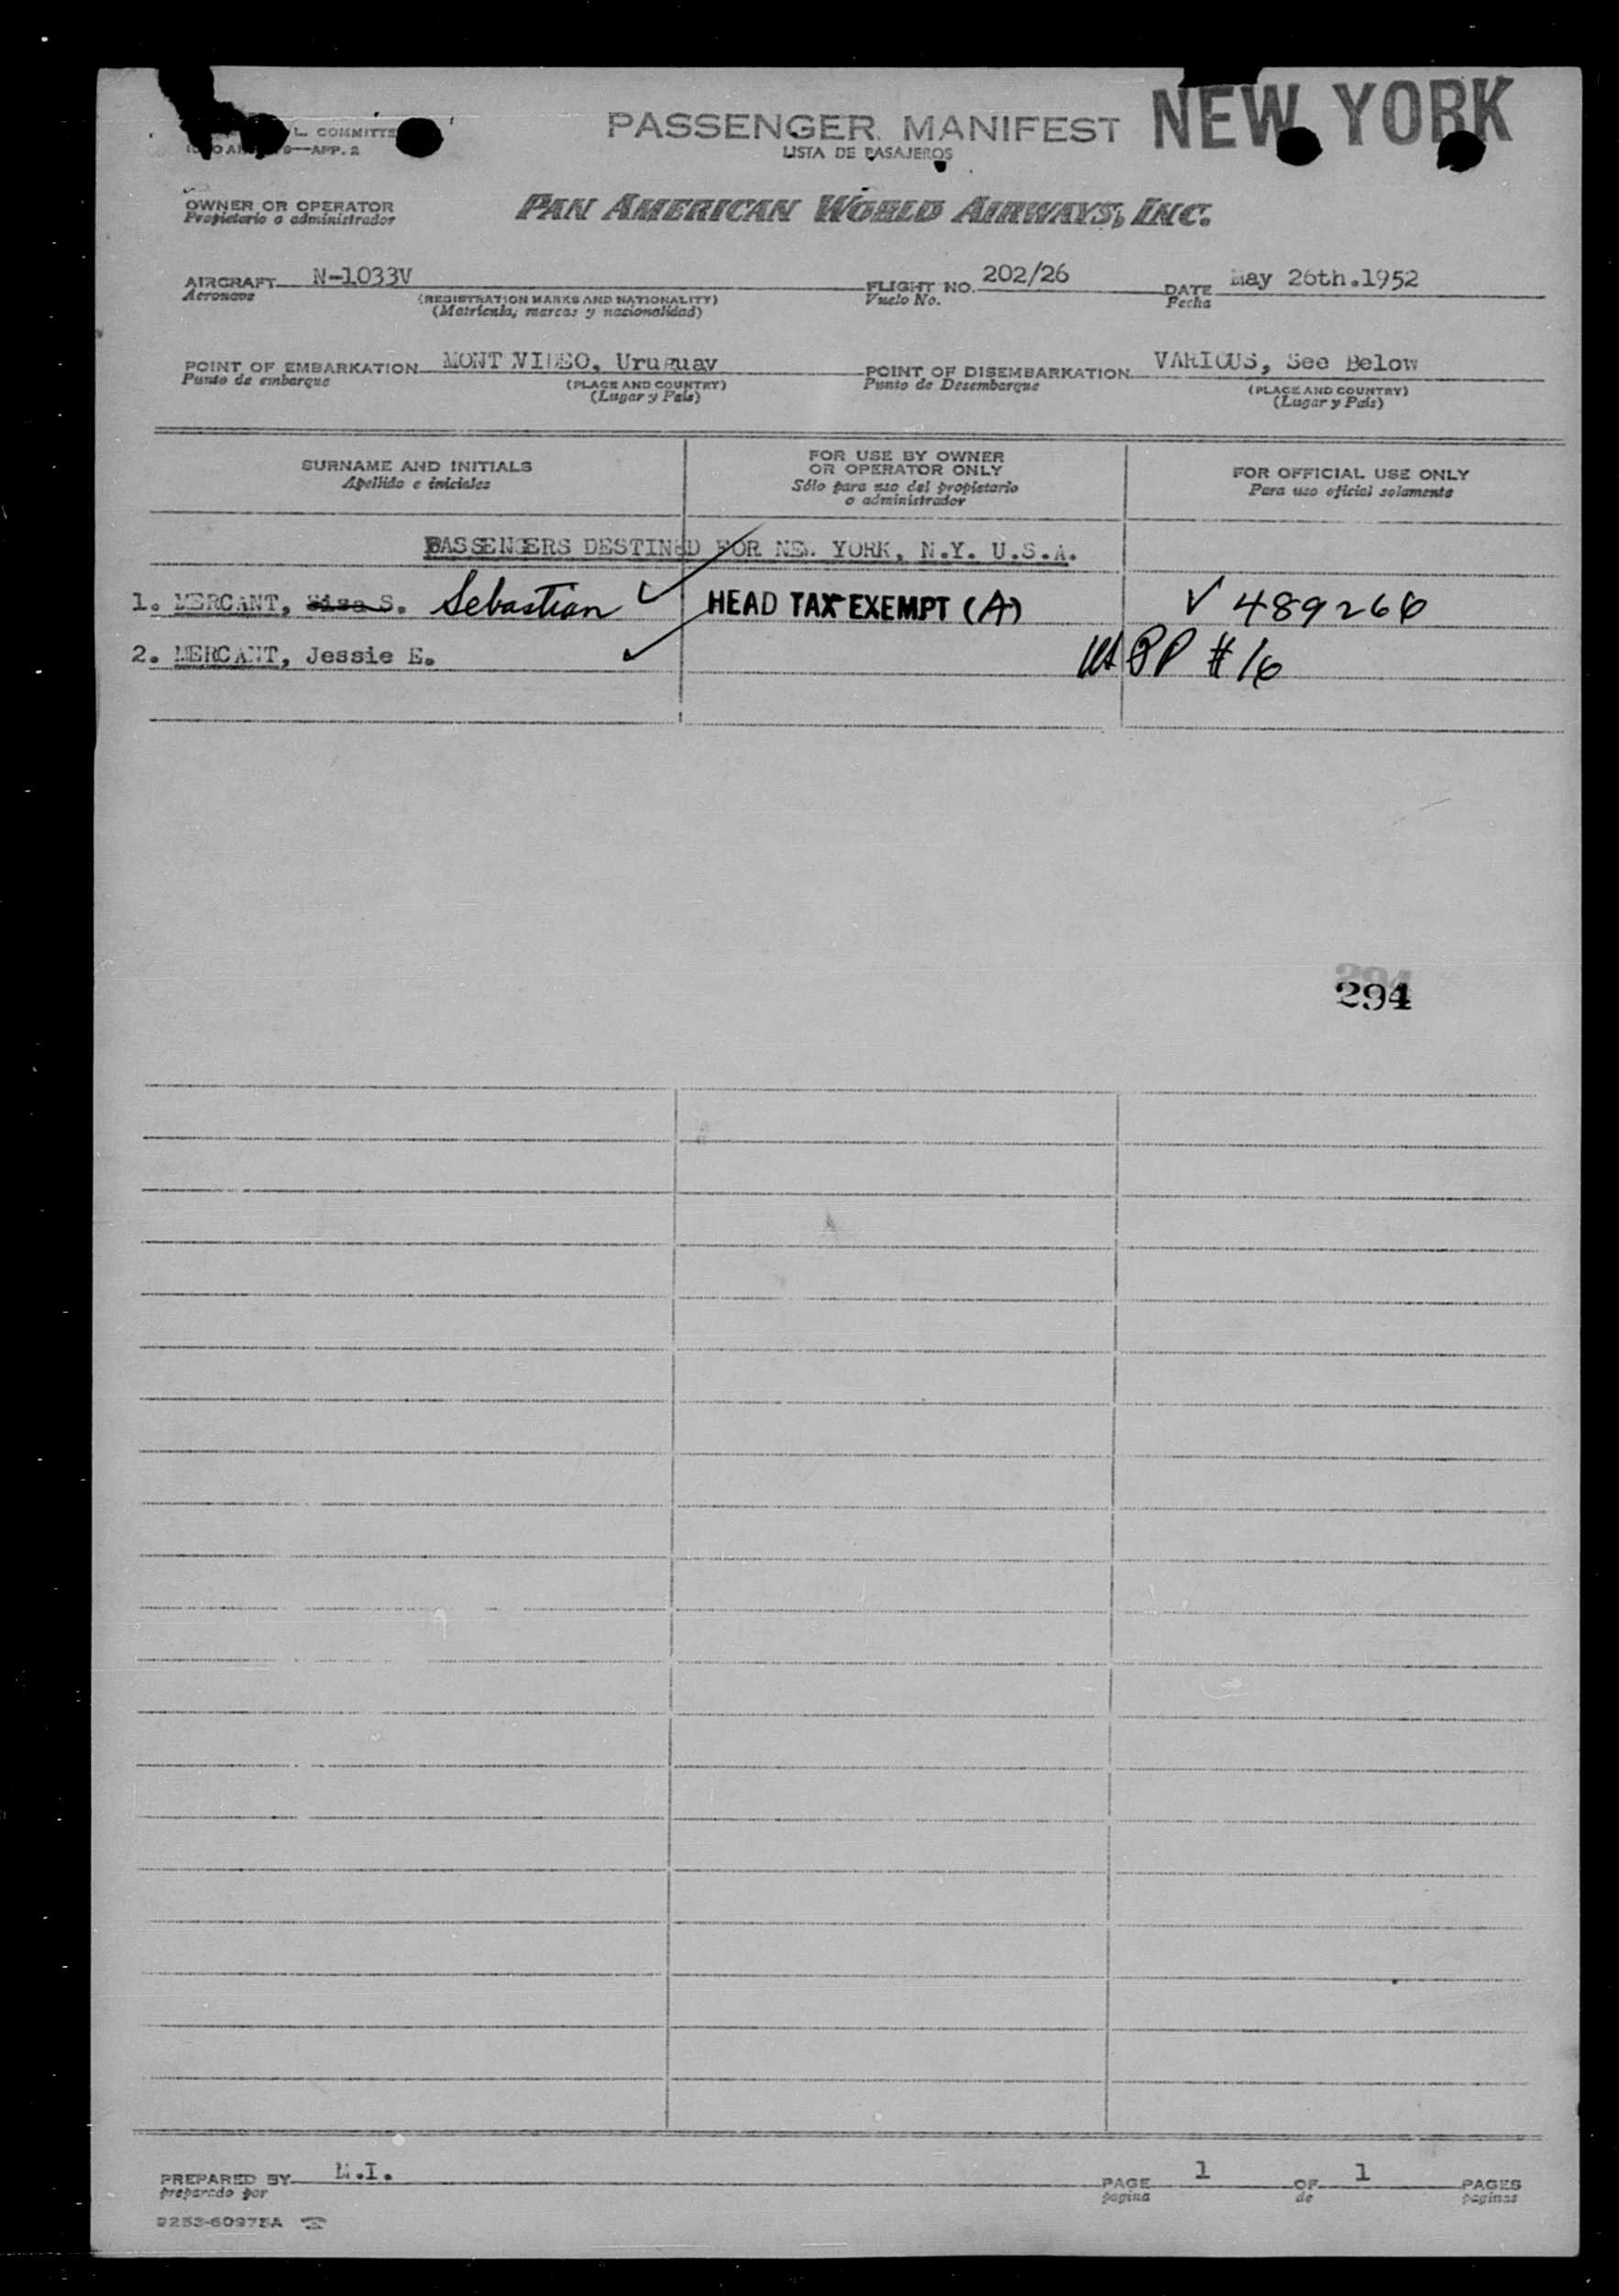 L. COMMITTE
APP. 2
PASSENGER MANIFEST NEW YORK
LISTA DE PASAJEROS
OWNER OR OPERATOR
Propietario o administrador
PAN AMERICAN WORLD AIRWAYS, INC.
AIRCRAFT N-1033V FLIGHT NO. 202/26 DATE May 26th.1952
Aeronave (REGISTRATION MARKS AND NATIONALITY) Vuelo No. Fecha
(Matricula, marcas y nacionalidad)
POINT OF EMBARKATION MONT VIDEO, Uruguay POINT OF DISEMBARKATION VARIOUS, See Below
Punto de embarque (PLACE AND COUNTRY) Punto de Desembarque (PLACE AND COUNTRY)
(Lugar y País) (Lugar y País)
SURNAME AND INITIALS FOR USE BY OWNER OR OPERATOR ONLY FOR OFFICIAL USE ONLY
Apellido e iniciales Sólo para uso del propietario o administrador Para uso oficial solamente
PASSENGERS DESTINED FOR NEW YORK, N.Y. U.S.A.
1. MERCANT, S. Sebastian ✓ HEAD TAX EXEMPT (A) V 489266
2. MERCANT, Jessie E. ✓ US PP #16
294
PREPARED BY M.I. PAGE 1 OF 1 PAGES
preparado por pagina de paginas
9253-60975A